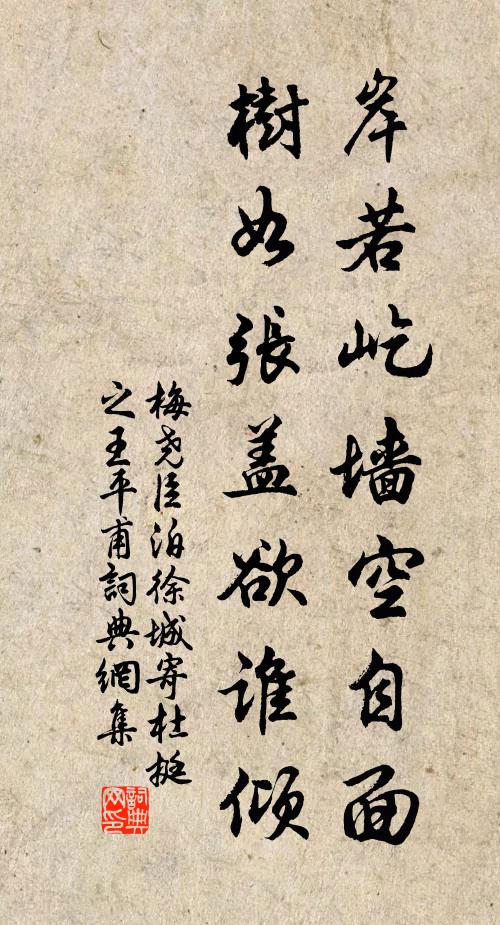 岸若屹墙空自面
樹如張蓋欲誰傾
梅尧臣泊徐城寄杜挺
之王平甫詞典網集
詞典
网印